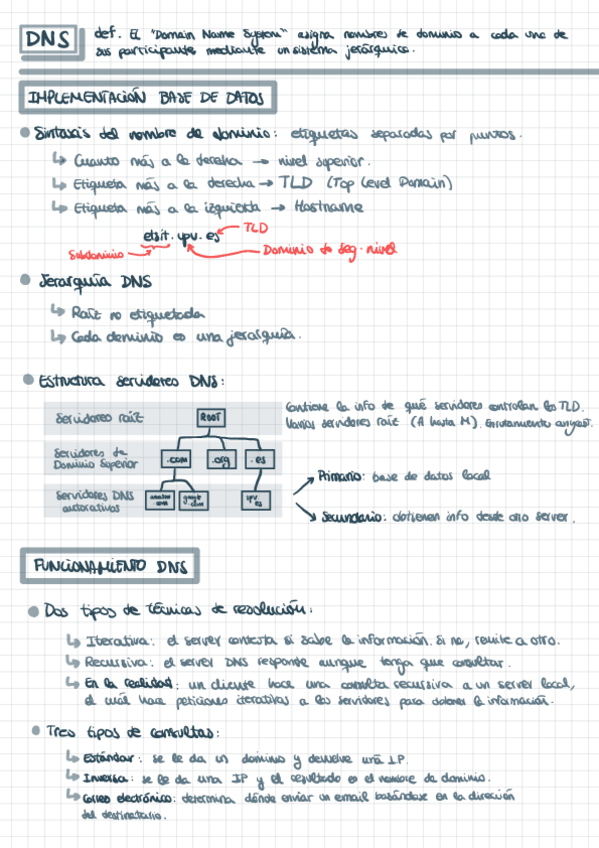 DNS
def. El "Domain Name System" asigna nombres de dominio a cada uno de
sus participantes mediante un sistema jerárquico.
IMPLEMENTACIÓN BASE DE DATOS
Sintaxis del nombre de dominio: etiquetas separadas por puntos.
Cuanto más a la derecha → nivel superior.
Etiqueta más a la derecha → TLD (Top Level Domain)
Etiqueta más a la izquierda → Hostname
etsit.upv.es
TLD
Subdominio
Dominio de seg. nivel
Jerarquía DNS
Raíz no etiquetada
Cada dominio es una jerarquía.
Estructura servidores DNS:
Servidores raíz
ROOT
Contiene la info de qué servidores controlan los TLD.
Varios servidores raíz (A hasta M). Enrutamiento anycast.
Servidores de
Dominio Superior
.com
.org
.es
Servidores DNS
autorativos
amazon
com
google
.com
upv.
es
Primario: base de datos local
Secundario: obtienen info desde otro server.
FUNCIONAMIENTO DNS
Dos tipos de técnicas de resolución:
Iterativa: el server contesta si sabe la información. Si no, remite a otro.
Recursiva: el server DNS responde aunque tenga que consultar.
En la realidad: un cliente hace una consulta recursiva a un server local,
el cuál hace peticiones iterativas a los servidores para obtener la información.
Tres tipos de consultas:
Estándar: se le da un dominio y devuelve una IP.
Inversa: se le da una IP y el resultado es el nombre de dominio.
Correo electrónico: determina dónde enviar un email basándose en la dirección
del destinatario.